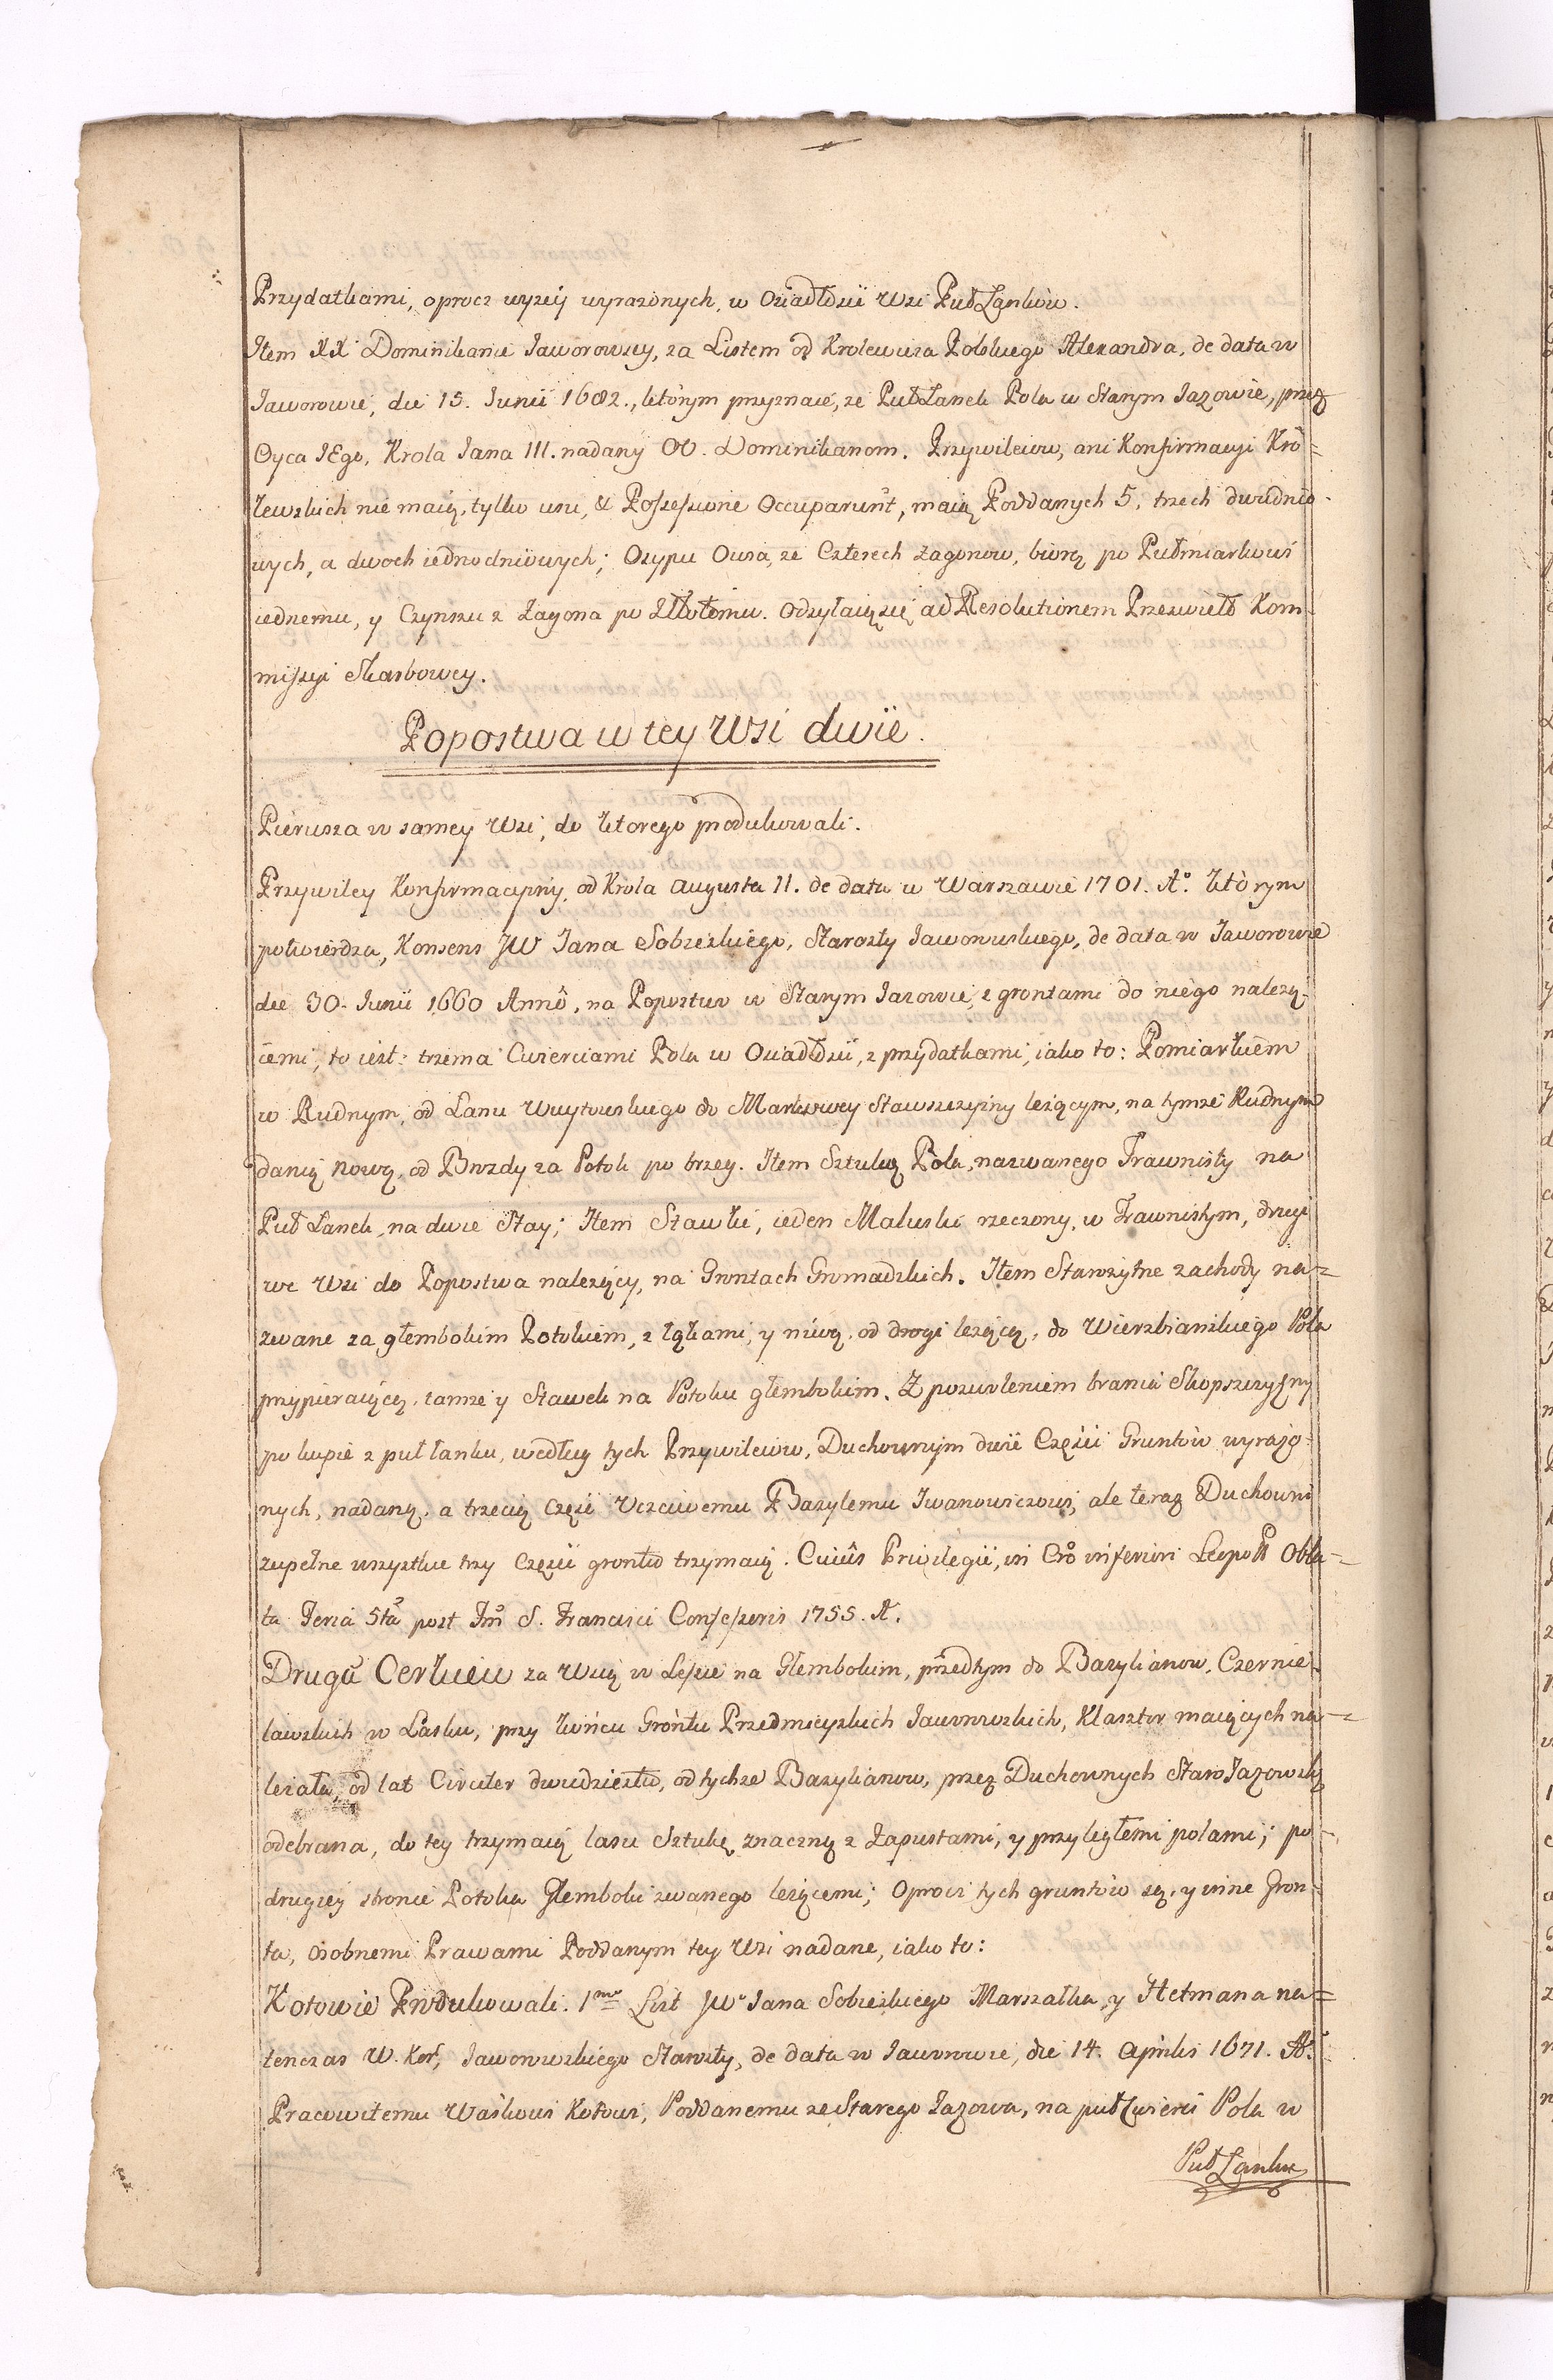 Przydatkami, oprocz wyzey wyrazonych, w Osiadłszii Wsi Puł Łankow.
Item XX Dominikanie Jaworowscy, za Listem od Krolewicza Polskiego Alexandra, de data w
Jaworowie, die 15. Junii 1682., ktorym przyznaie, ze Puł Łanek Pola w Starym Jazowie, przez
Oyca JEgo, Krola Jana III. nadany OO. Dominikanom. Przywileiow, ani Konfirmacyi Kro=
lewskich nie maią, tylko usu, & Possessione Occuparunt, maią Poddanych 5, trzech dwudnio-
wych, a dwoch iednodniowych; Osypu Owsa, ze Czterech zagonow, biorą po Pułmiarkowi
iednemu, y Czynszu z Zagona po Złłotemu. Odsyłaią się ad Resolutionem Przeswiet Kom-
missyi Skarbowey.
Popostwa w tey Wsi dwie.
Pierwsza w samey Wsi, do ktorego produkowali.
Przywiley Konfirmacyiny, od Krola Augusta II. de data w Warszawie 1701. Aº. ktorym
potwierdza, Konsens JW Jana Sobieskiego, Starosty Jaworowskiego, de data w Jaworowie
die 30. Junii 1660 Anno, na Popostwo w Starym Jazowie, z grontami do niego nalezą-
cemi, to iest: trzema Cwierciami Pola w Osiadłszii, z przydatkami, iako to: Pomiarkiem
w Rudnym, od Lanu Woytowskiego do Markowey Stawszczyzny leżącym, na tymze Rudnym
danią nową, od Bruzdy za Potok po brzeg. Item Sztuką Pola, nazwanego Trawnisty na
Puł Łanek, na dwie Stay; Item Stawki, ieden Maluski rzeczony, w Trawnistym, drugi
we Wsi do Popostwa należący, na Grontach Gromadzkich. Item Starożytne zachody na=
zwane za głembokim Potokiem, z łąkami, y niwą, od drogi leżącą, do Wierzbianskiego Pola
przypieraiącą, tamze y Stawek na Potoku głembokim. Z pozwoleniem brania Skopszczyzny
po kupie z puł łanku, według tych Przywileiow, Duchownym dwie Części Gruntow wyrażo-
nych, nadaną, a trzecią część Uczciwemu Bazylemu Iwanowiczowi, ale teraz Duchowni
zupełne wszystkie trzy Części grontu trzymaią. Cuius Privilegii, in Cro inferiori Leopoll Obla=
ta Feria 5ta post Fm S. Francisci Confessoris 1755. A.
Druga Cerkiew za Wsią w Lesie na Głembokim, przedtym do Bazylianow, Czernie-
lawskich w Lasku, przy końcu Grontu Przedmieyskich Jaworowskich, Klasztor maiących na=
leżała, od lat Circiter dwudziestu, od tychze Bazylianow, przez Duchownych Staro Jazowsky
odebrana, do tey trzymaią lasu Sztukę znaczną z Zapustami, y przyległemi polami; po-
drugiey stronie Potoka Głemboki zwanego leżącemi; Oprocz tych gruntow są, y inne Gron-
ta, osobnemi Prawami Poddanym tey Wsi nadane, iako to:
Kotowie Produkowali. 1mo List JWº Jana Sobieskiego Marszałka, y Hetmana na=
tenczas W. Kor, Jaworowskiego Starosty, de data w Jaworowie, die 14. Aprilis 1671. Aº.
Pracowitemu Waskowi Kotowi, Poddanemu ze Starego Jazowa, na puł Cwierci Pola w
Puł Łanku